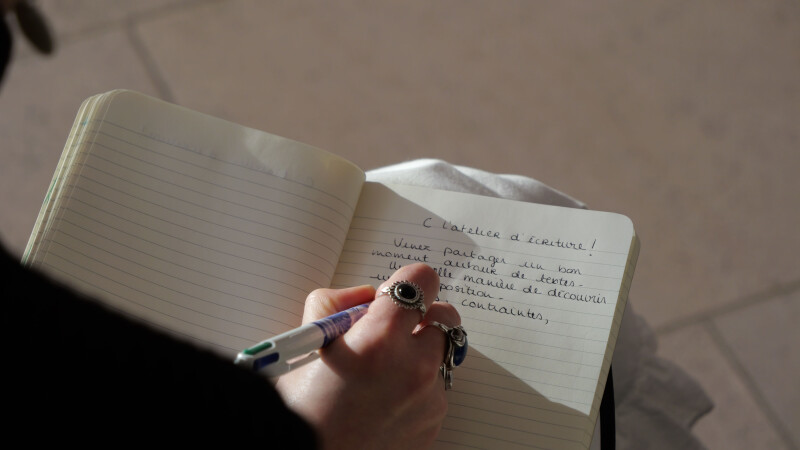 C l'atelier d'écriture!
Venez partager un bon
moment autour de textes.
Une manière de découvrir
contraintes,